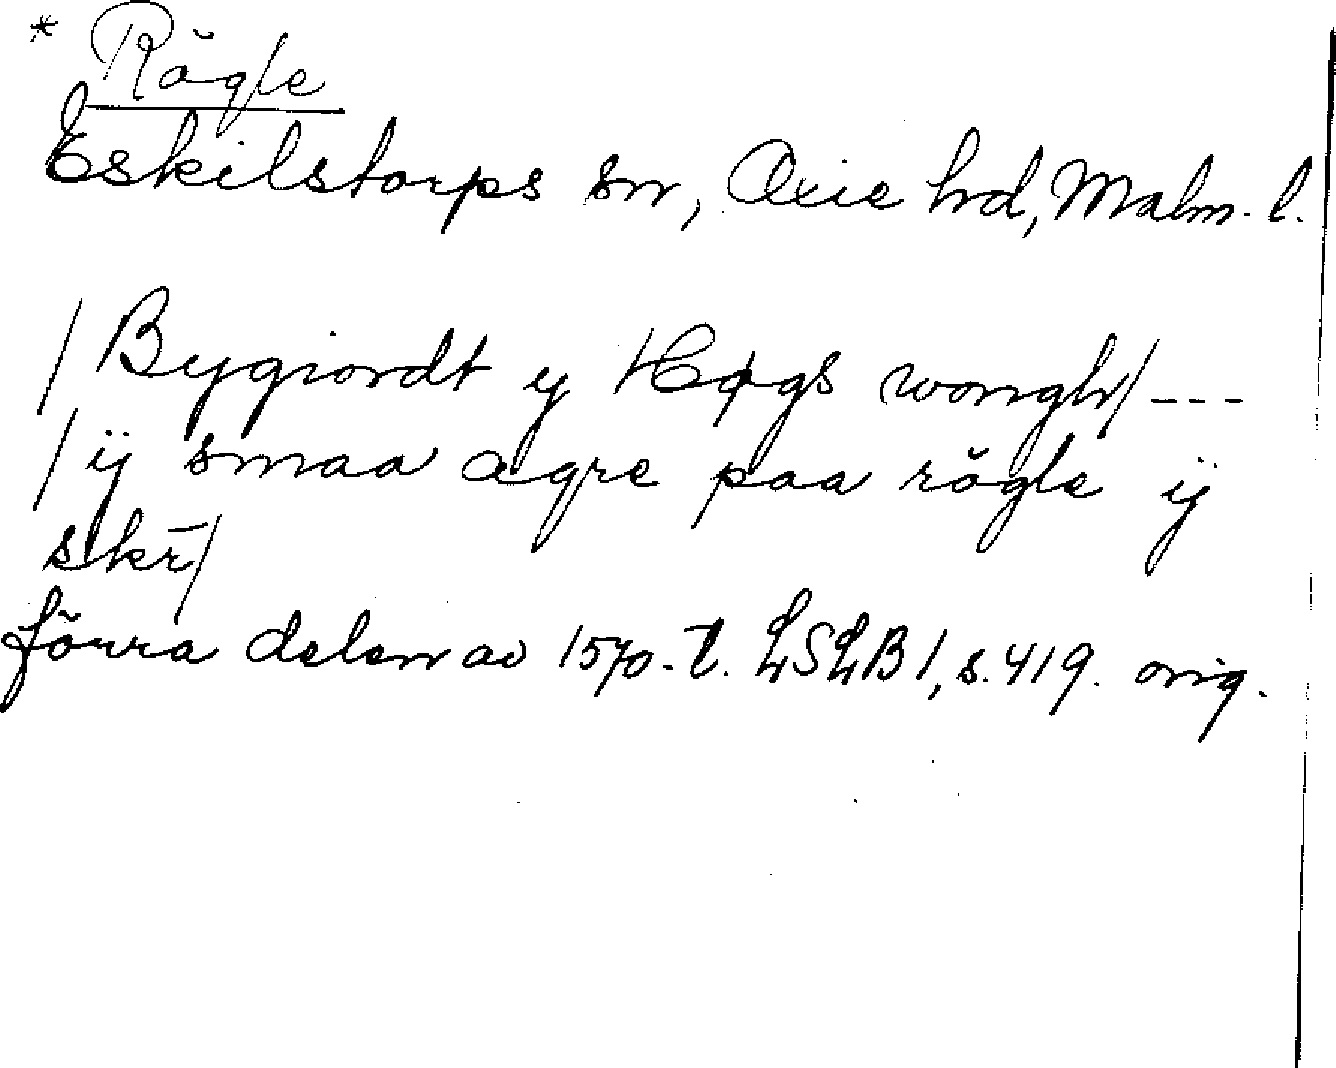 * Rögle
Eskilstorps sn, Oxie hd, Malm. l.
/Bygiordt y Høgs wongh/ ---
/ij smaa agre paa rögle ij
skr̄/
förra delen av 1570-t. LSLB 1, s. 419. orig.